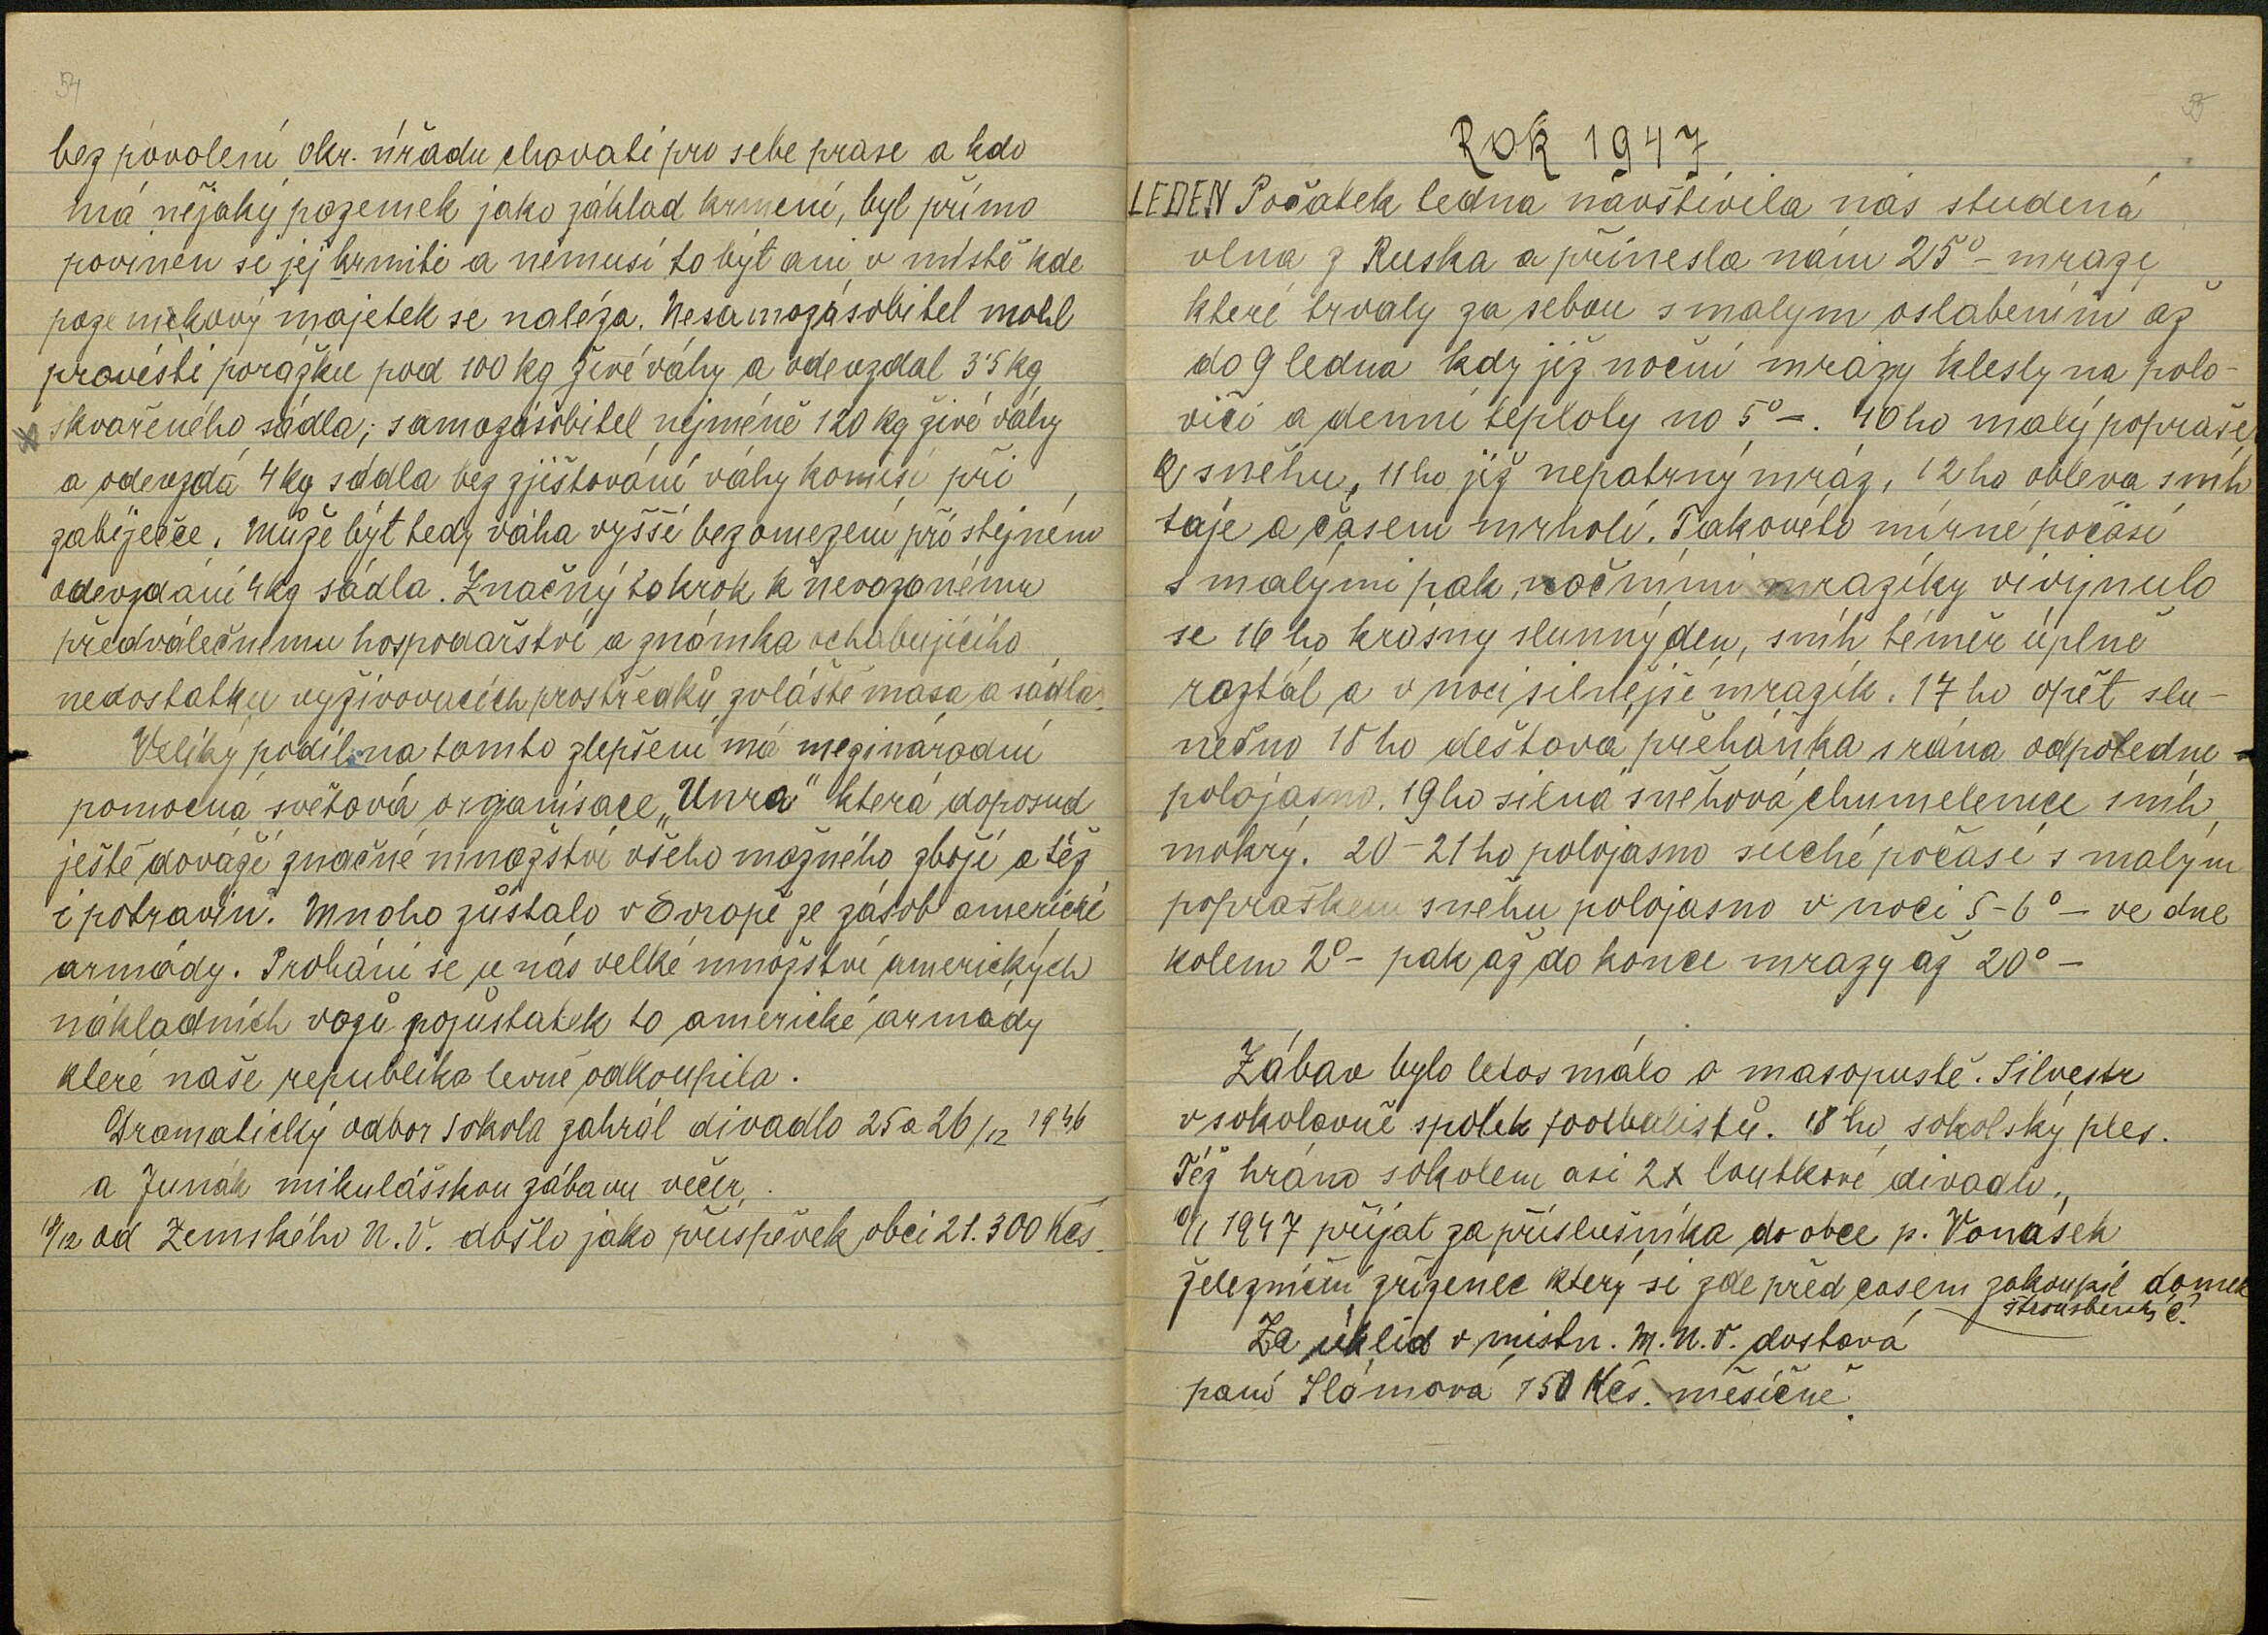 54
bez povolení okr. úřadu chovati pro sebe prase a kdo
má nějaký pozemek jako základ krmení, byl přímo
povinen si jej krmiti a nemusí to být ani v místě kde
pozemkový majetek se naléza. Nesamozásobitel mohl
prověsti porážku pod 100 kg živé váhy a odevzdal 3'5 kg
skvařeného sádla; samozásobitel nejméně 120 kg živé váhy
a odevzdá 4 kg sádla bez zjištování váhy komisí při
zabíječce. Může být tedy váha vyšší bez omezení při stejném
odevzdání 4 kg sádla. Značný to krok k nevázanému
předválečnému hospodařství a známka ochabujícího
nedostatku vyživovacích prostředků, zvláště masa a sádla.
Veliký podíl na tomto zlepšení má mezinárodní
pomocná světová organisace „Unra" která doposud
ještě dováží značné množství všeho možného zboží a též
i potravin. Mnoho zůstalo v Evropě ze zásob americké
armády. Prohání se u nás velké množství amerických
nákladních vozů pozůstatek to americké armády
které naše republika levně odkoupila.
Dramatický odbor Sokola zahrál divadlo 25 a 26/12 1946
a Junák mikulášskou zábavu večer.
18/12 od Zemského N.V. došlo jako příspěvek obci 21.300 Kčs.
55
Rok 1947
LEDEN Počátek ledna navštívila nás studená
vlna z Ruska a přinesla nám 25° - mrazi
které trvaly za sebou s malym oslabením až
do 9 ledna kdy již noční mrazy klesly na polo-
vici a denní teploty na 5° -. 10 ho malý poprašek
sněhu, 11 ho již nepatrný mráz, 12 ho obleva sníh
taje a časem mrholí. Takovéto mírné počásí
s malými pak nočními mrazíky vivinulo
se 16 ho krásny slunný den, sníh téměř úplně
roztál a v noci silnější mrazík. 17 ho opět slu-
nečno 18 ho deštová přeháňka s rána odpoledne
polojasno. 19 ho silná sněhová chumelenice sníh
mokrý. 20 - 21 ho polojasno suché počásí s malým
popraškem sněhu polojasno v noci 5-6° - ve dne
kolem 2° - pak až do konce mrazy až 20° -
Zábav bylo letos málo o masopustě. Silvestr
v sokolovně spolek footbalistů. 18 ho sokolský ples.
Též hráno sokolem asi 2x loutkové divadlo.
1947 přijat za příslušníka do obce p. Vonásek
železniční zřízenec který si zde před časem zakoupil domek
č.
Za úklid v místn. M.N.V. dostává
paní Slámová 150 Kčs. měsíčně.